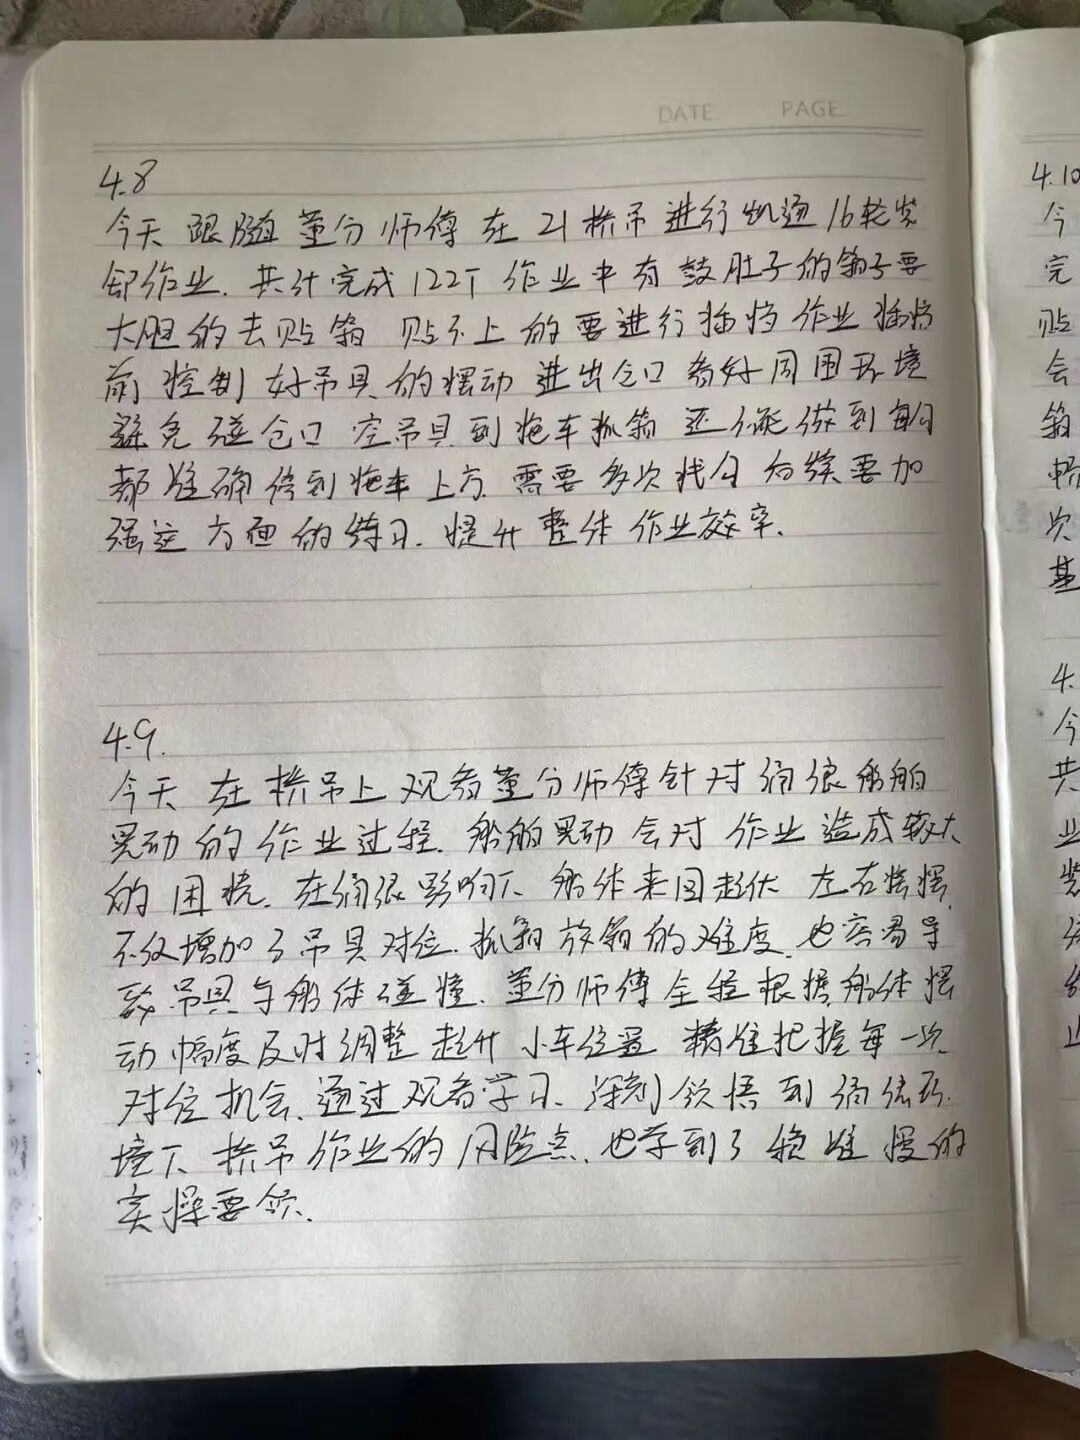 DATE PAGE
4.8
今天 跟随 董分 师傅 在 21 桥吊 进行 凯通 16 轮装
卸作业. 共计完成 122T 作业中 有 鼓肚子的箱子要
大胆的去贴箱 贴不上的要进行插档作业 插档
前 控制 好吊具的摆动 进出仓口 看好周围环境
避免碰仓口 空吊具到拖车抓箱 还不能做到每勾
都准确停到拖车上方. 需要多次找勾 后续要加
强这方面的练习. 提升整体作业效率.
4.9.
今天 在桥吊上 观看董分师傅针对涌浪船舶
晃动的作业过程. 船舶晃动会对作业造成较大
的困扰. 在涌浪影响下 船体来回起伏 左右摇摆.
不仅增加了吊具对位. 抓箱放箱的难度. 也容易导
致吊具与船体碰撞. 董分师傅全程根据船体摆
动幅度及时调整起升 小车位置 精准把握每一次
对位机会. 通过观看学习. 深刻领悟到涌浪环
境下 桥吊作业的风险点. 也学到了稳准慢的
实操要领.
4.10
今
完
贴
会
箱
畅
次
基
4.
今
共
业